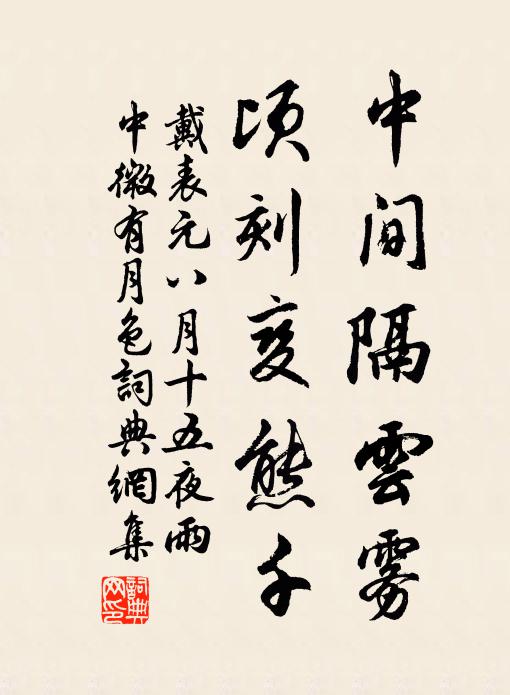 中间隔雲雾
頃刻变態千
戴表元八月十五夜雨
中微有月色詞典網集
詞典網印